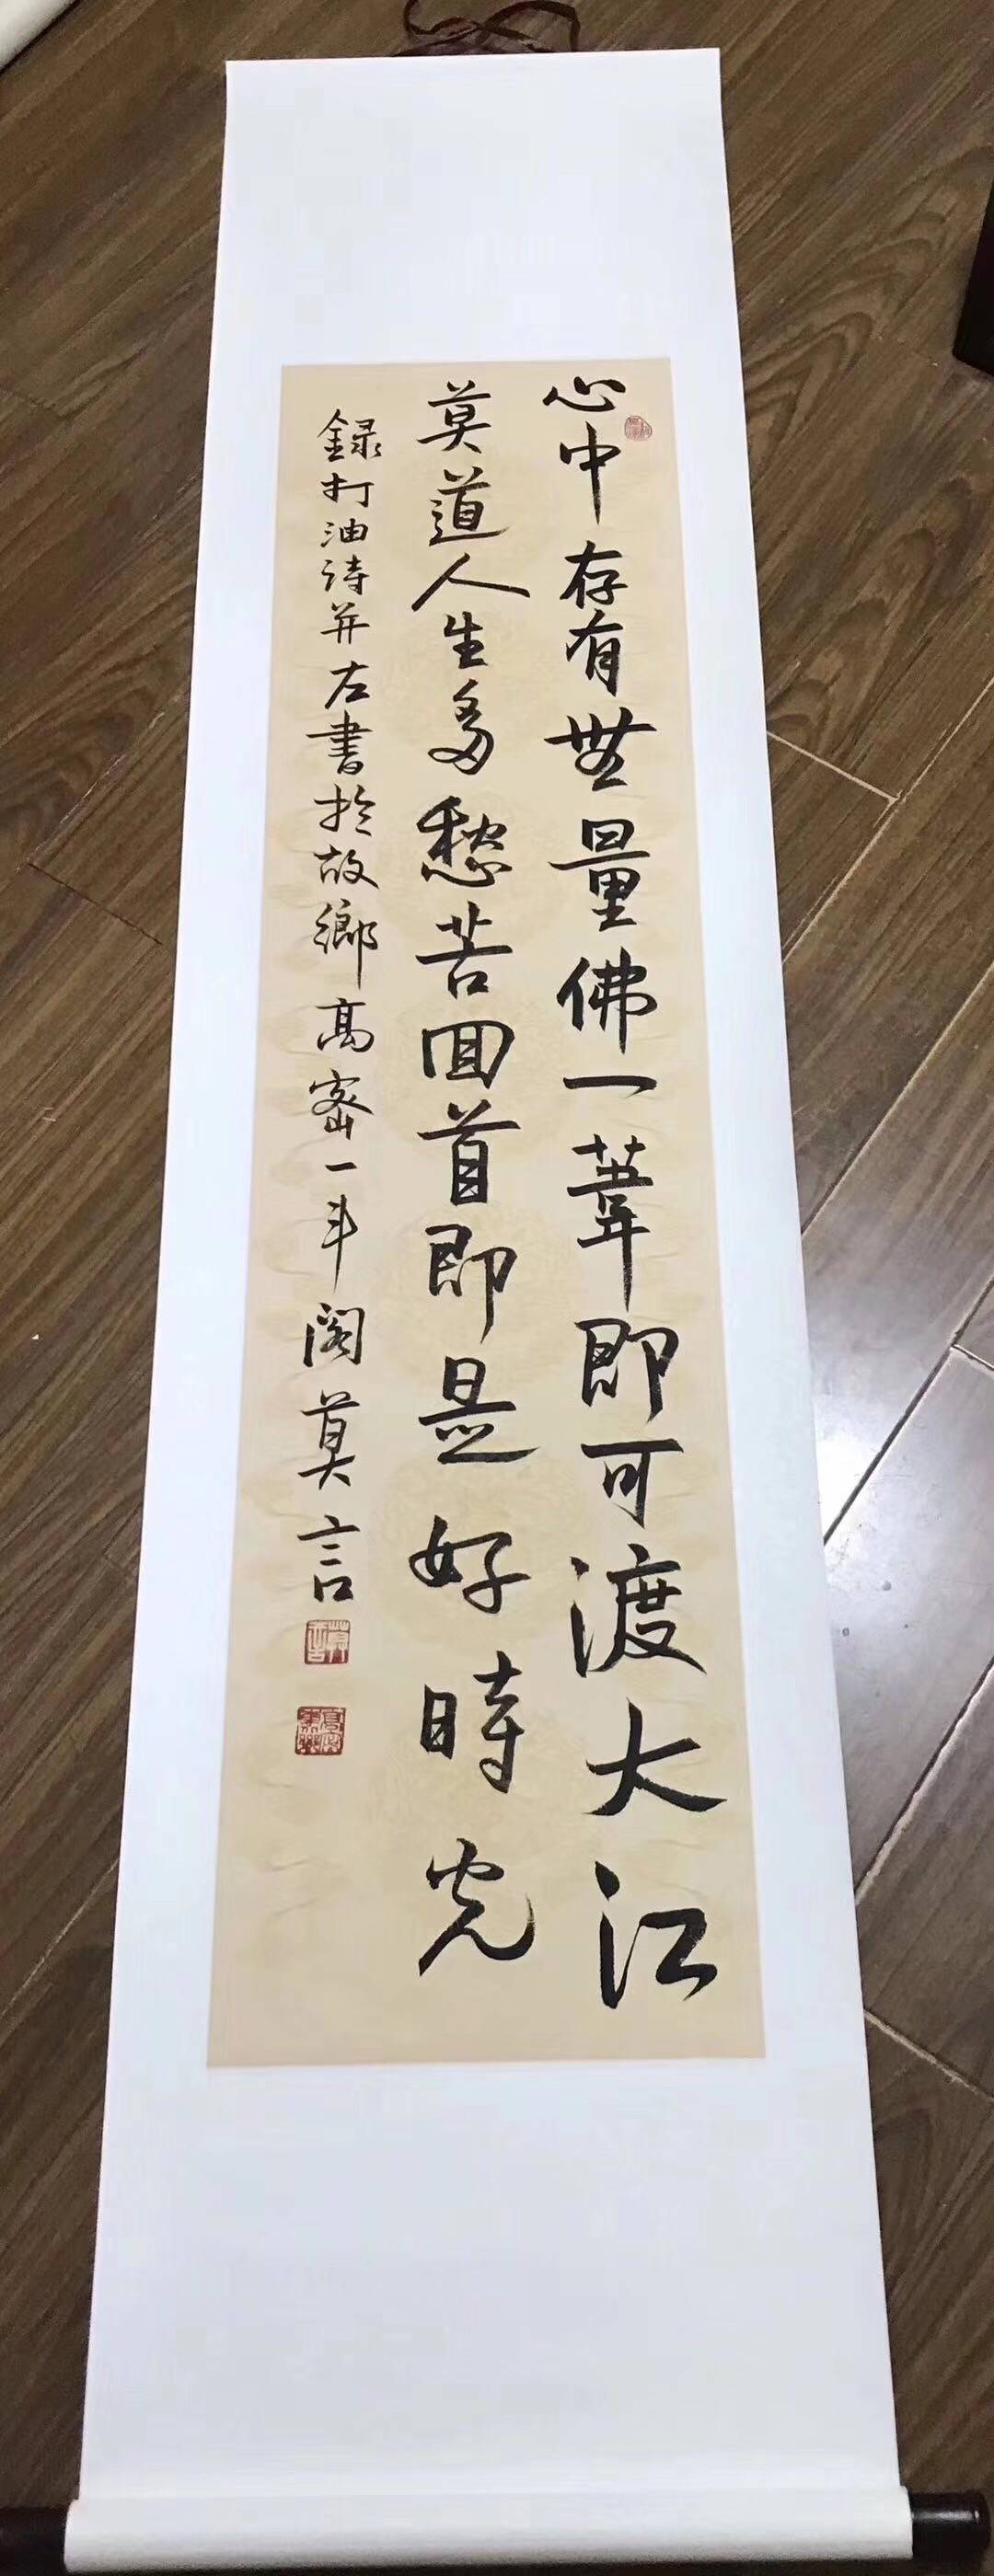 心中存有無量佛一葦即可渡大江
莫道人生多愁苦回首即是好時光
録打油诗并左書於故鄉高密一斗阁莫言
莫言